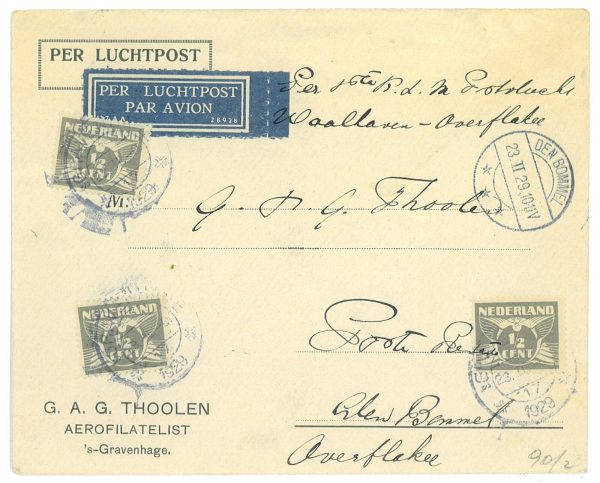 PER LUCHTPOST
PER LUCHTPOST
PAR AVION
28928
Per 1ste K.L.M Postvlucht
Waalhaven - Overflakee
NEDERLAND
1/2
CENT
DEN BOMMEL
23.II.29.10-11V
G. A. G. Thoolen
NEDERLAND
1/2
CENT
1929
NEDERLAND
1/2
CENT
1929
Poste Restante
Den Bommel
Overflakee
G. A. G. THOOLEN
AEROFILATELIST
's-Gravenhage.
90/2